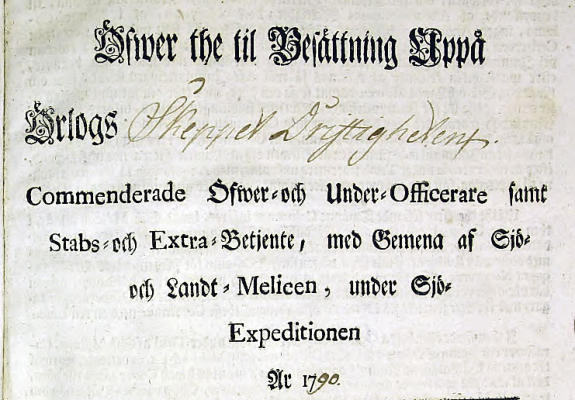 Öfwer the til Besättning Uppå
Örlogs Skeppet Dristighetens.
Commenderade Öfwer-och Under-Officerare samt
Stabs-och Extra-Betjente, med Gemena af Sjö-
och Landt-Melicen, under Sjö-
Expeditionen
År 1790.